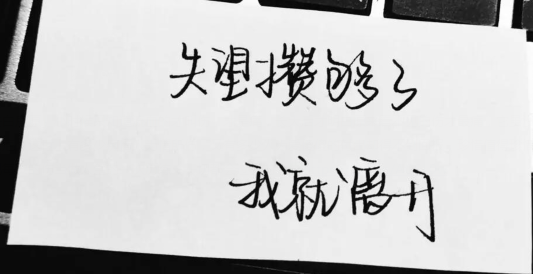 失望攒够了
我就离开